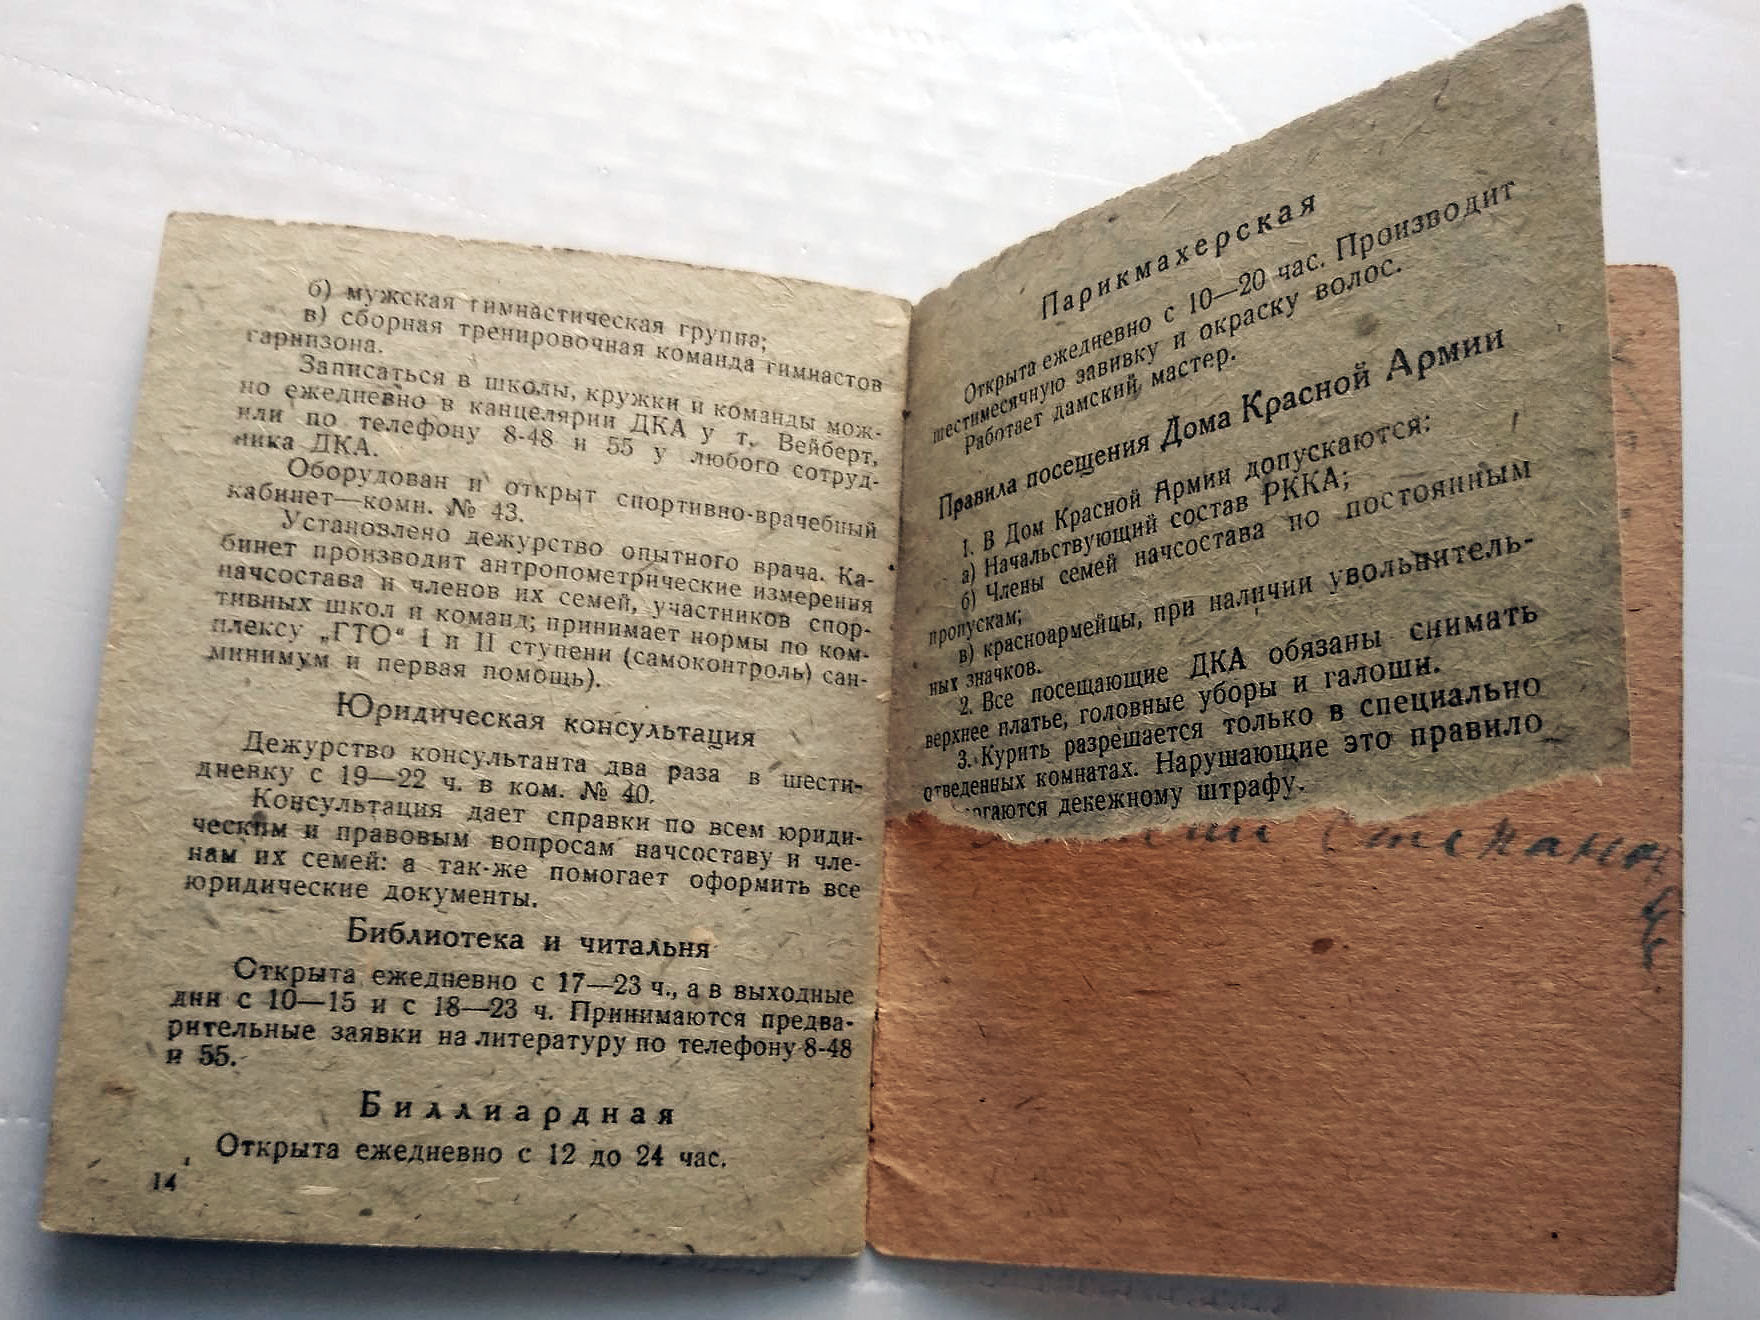 б) мужская гимнастическая группа;
в) сборная тренировочная команда гимнастов
гарнизона.
Записаться в школы, кружки и команды мож-
но ежедневно в канцелярии ДКА у т. Вейберт,
или по телефону 8-48 и 55 у любого сотруд-
ника ДКА.
Оборудован и открыт спортивно-врачебный
кабинет—комн. № 43.
Установлено дежурство опытного врача. Ка-
бинет производит антропометрические измерения
начсостава и членов их семей, участников спор-
тивных школ и команд; принимает нормы по ком-
плексу „ГТО“ I и II ступени (самоконтроль) сан-
минимум и первая помощь).
Юридическая консультация
Дежурство консультанта два раза в шести-
дневку с 19—22 ч. в ком. № 40.
Консультация дает справки по всем юриди-
ческим и правовым вопросам начсоставу и чле-
нам их семей: а так-же помогает оформить все
юридические документы.
Библиотека и читальня
Открыта ежедневно с 17—23 ч., а в выходные
дни с 10—15 и с 18—23 ч. Принимаются предва-
рительные заявки на литературу по телефону 8-48
и 55.
Биллиардная
Открыта ежедневно с 12 до 24 час.
14
Парикмахерская
Открыта ежедневно с 10—20 час. Производит
шестимесячную завивку и окраску волос.
Работает дамский мастер.
Правила посещения Дома Красной Армии
1. В Дом Красной Армии допускаются:
а) Начальствующий состав РККА;
б) Члены семей начсостава по постоянным
пропускам;
в) красноармейцы, при наличии увольнитель-
ных значков.
2. Все посещающие ДКА обязаны снимать
верхнее платье, головные уборы и галоши.
3. Курить разрешается только в специально
отведенных комнатах. Нарушающие это правило
денежному штрафу.